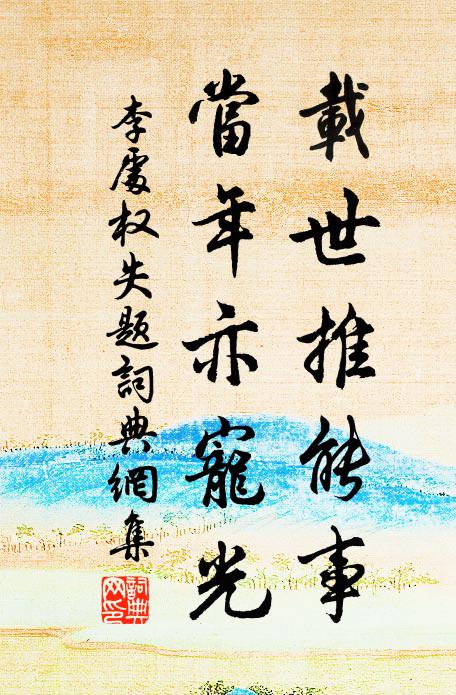 載世推能事
當年亦寵光
李處权失题詞典網集
詞典